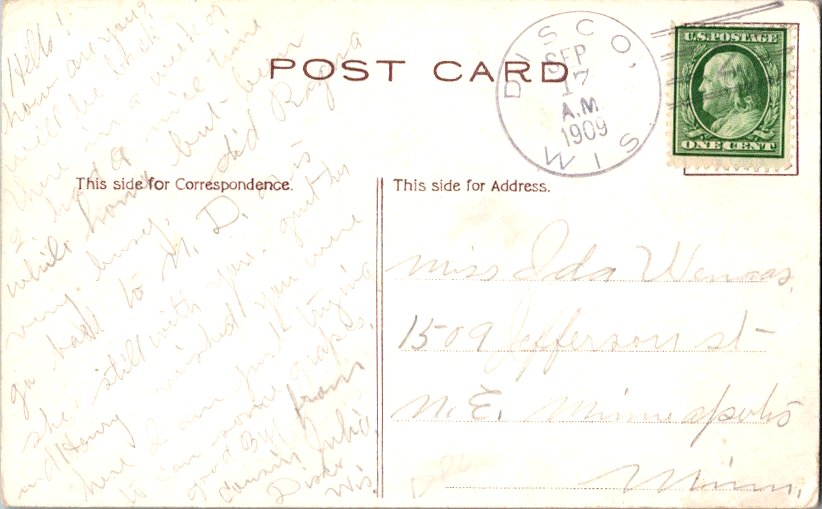 POST CARD
DISCO,
SEP
17
A.M.
1909
WIS
U.S. POSTAGE
ONE CENT
This side for Correspondence.
This side for Address.
Hello!
how are you,
will be back
there in a week or
I had a nice time
while home but been
very busy. did Ragna
go back to N. D. or is
she still with you.
and Henry wished you were
here I am just trying
to can some grapes.
good By. from
cousin Julia,
Disco
Wis.
Miss Ida
1509 Jefferson st
N.E. Minneapolis
Minn.